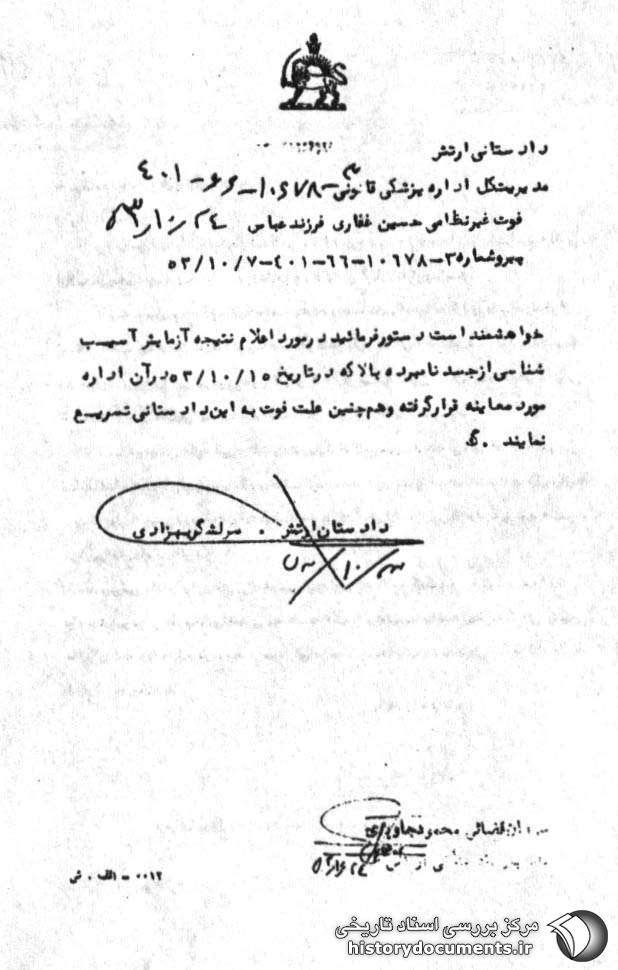 دادستانی ارتش
مدیریتکل اداره پزشکی قانونی ۳-۱۰۶۷۸-۶۶-۴۰۱
فوت غیرنظامی حسین غفاری فرزند عباس
پیروشماره ۳-۱۰۶۷۸-۶۶-۴۰۱-۵۳/۱۰/۷
خواهشمند است دستور فرمائید در مورد اعلام نتیجه آزمایش آسیب
شناسی از جسد نامبرده بالا که در تاریخ ۵۳/۱۰/۱۵ در آن اداره
مورد معاینه قرار گرفته و هم چنین علت فوت به این دادستانی تسریع
نمایند . گ
دادستان ارتش . سرلشگر بهزادی
۱۰/
قضائی محمود
۰۰۱۲ - الف . ش
مرکز بررسی اسناد تاریخی
historydocuments.ir